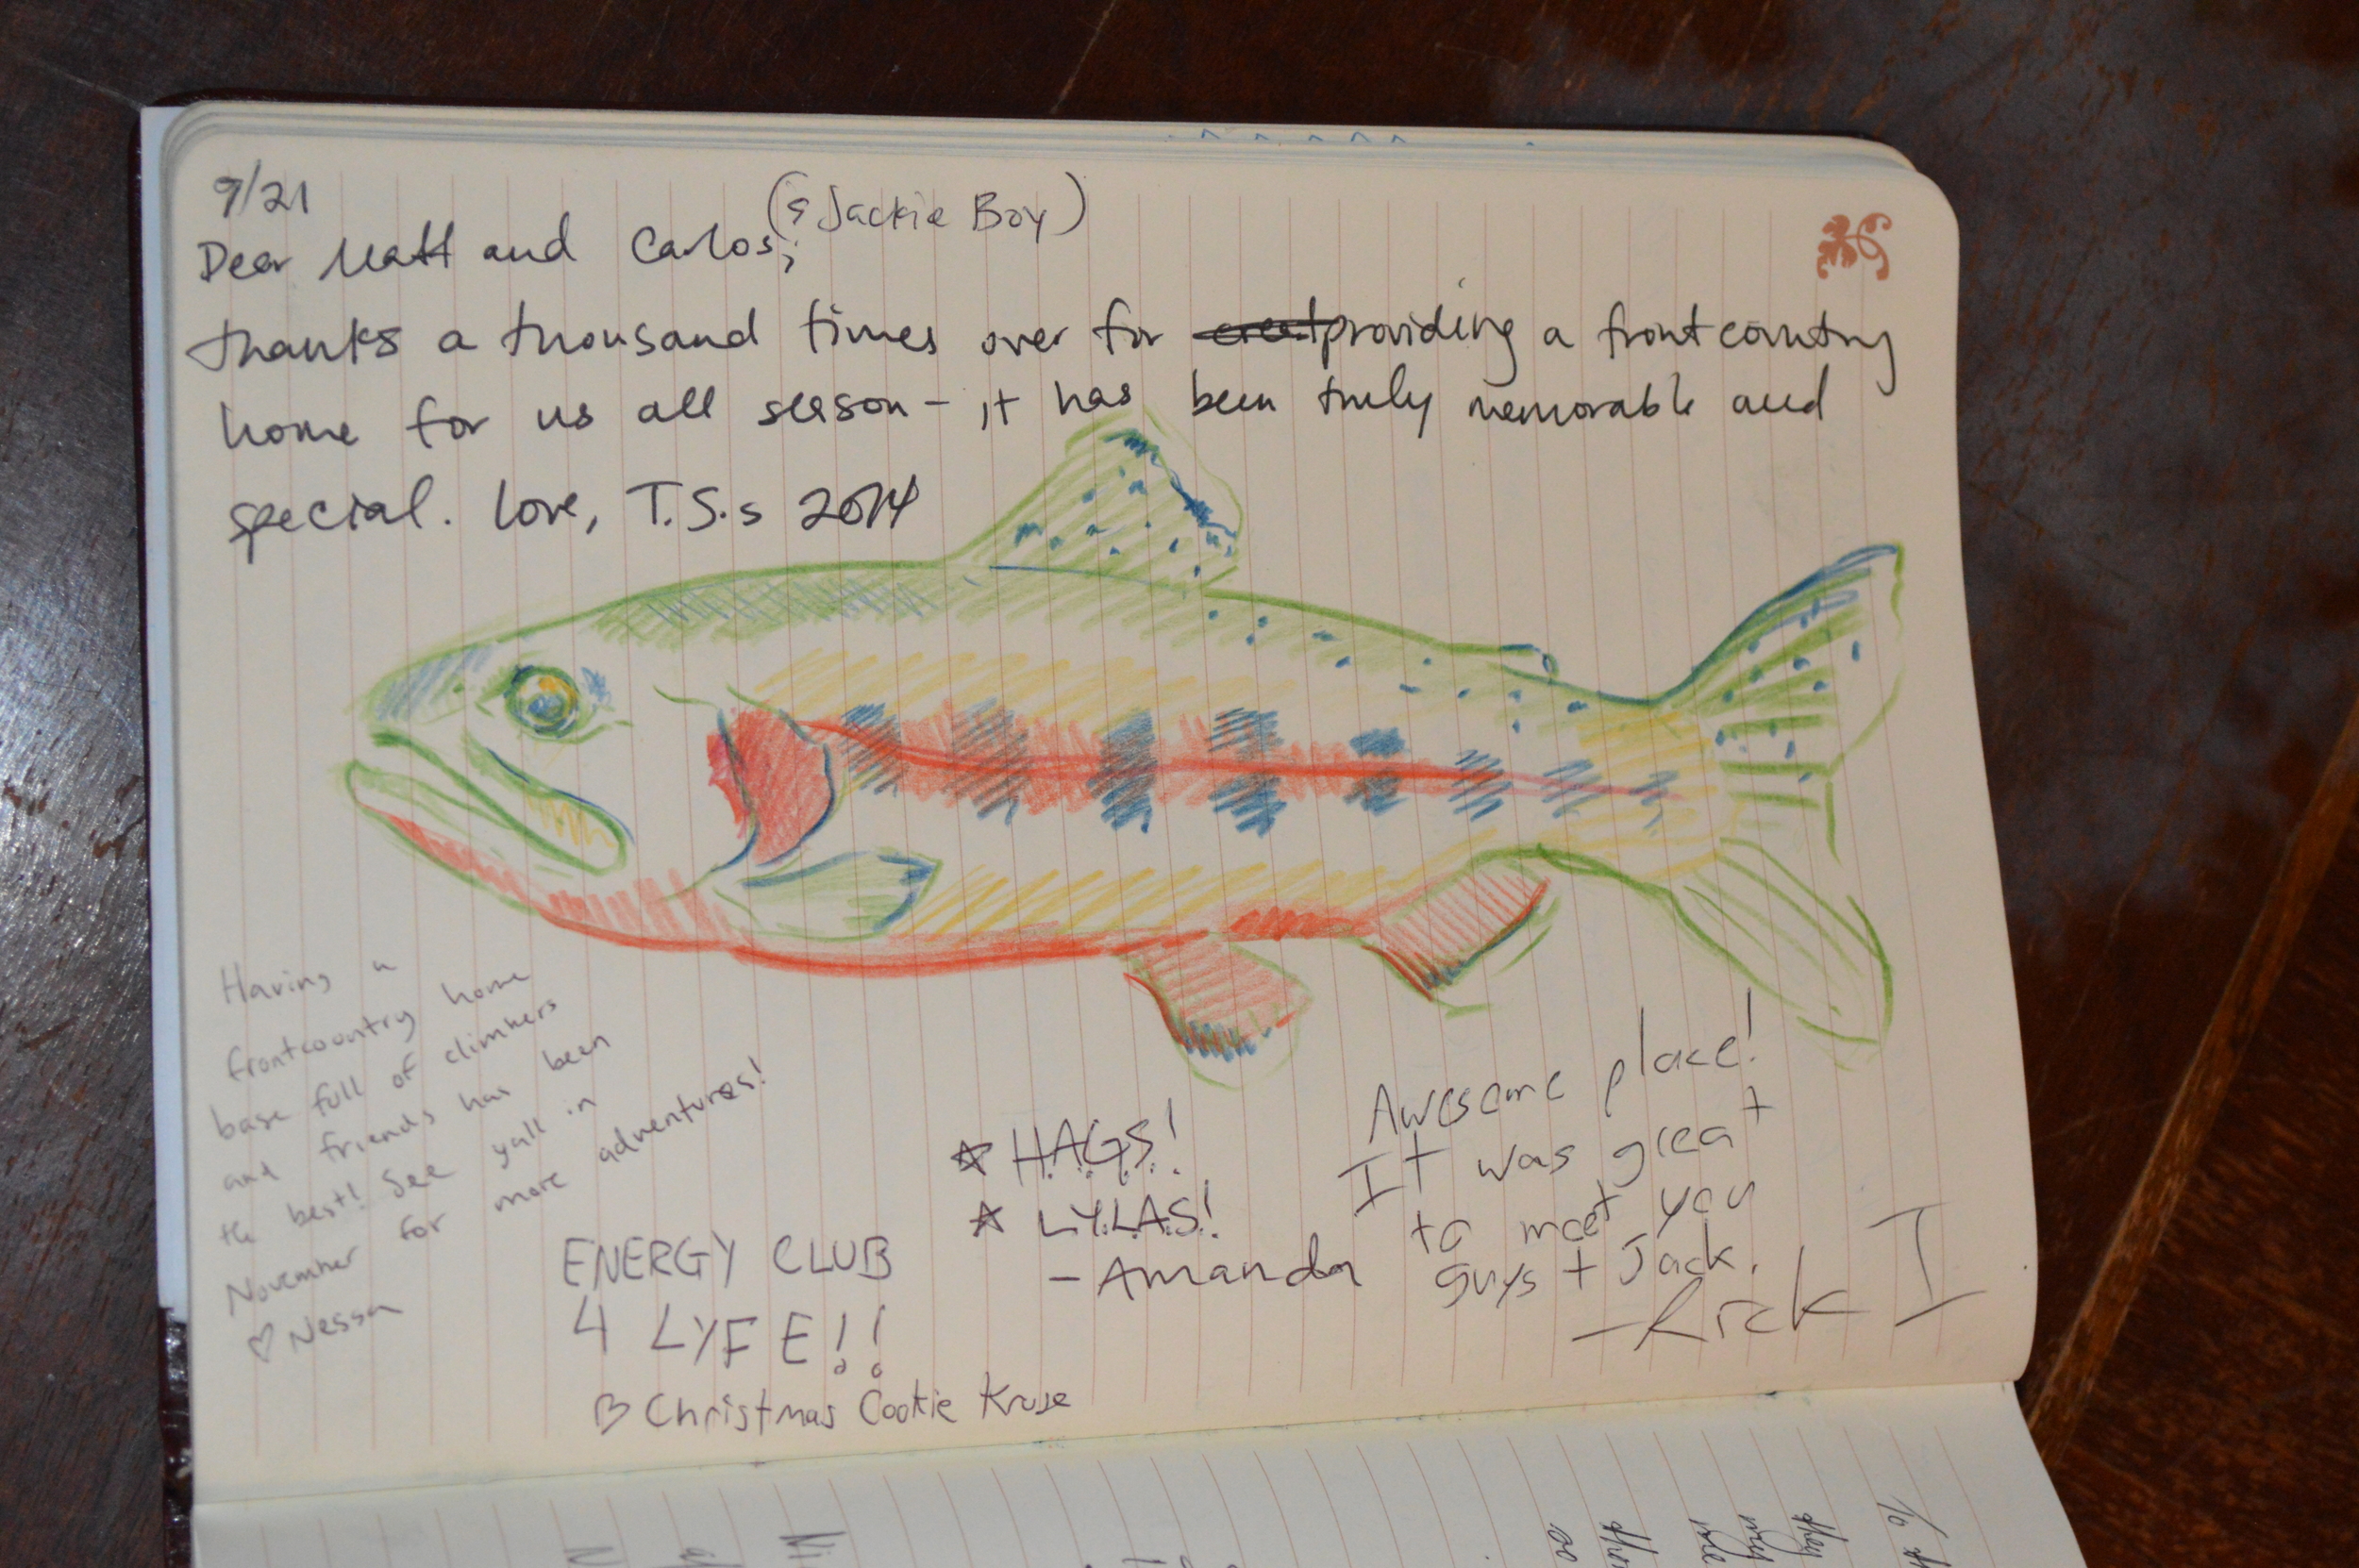 9/21
(& Jackie Boy)
Dear Matt and Carlos,
thanks a thousand times over for providing a frontcountry
home for us all season - it has been truly memorable and
special. Love, T.S.s 2014
Having a
frontcountry home
base full of climbers
and friends has been
the best! See yall in
November for more adventures!
♡ Nessa
ENERGY CLUB
4 LYFE!!
♡ Christmas Cookie Kruse
☆ H.A.G.S.!
☆ L.Y.L.A.S.!
- Amanda
Awesome place!
It was great
to meet you
guys + Jack.
- Rick I